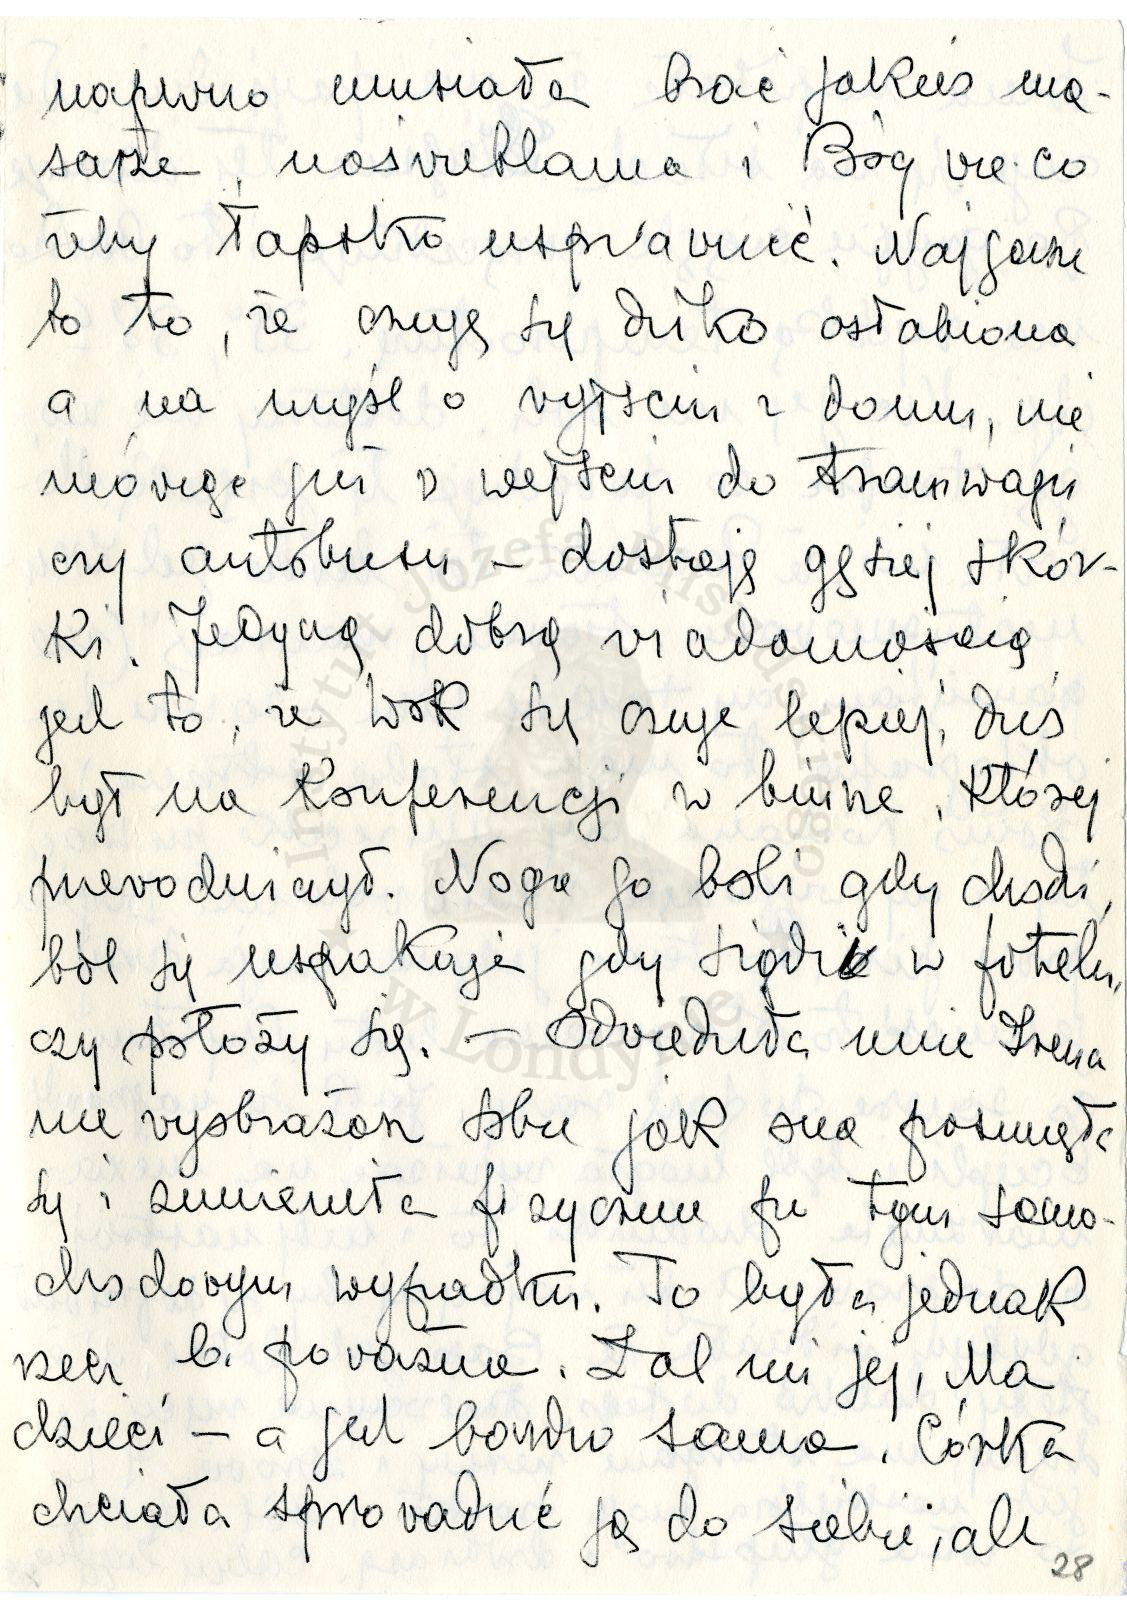 napewno musiała brać jakieś ma-
saże, naświetlania i Bóg wie co
żeby łapsko usprawnić. Najgorsze
to to, że czuję się dziko osłabiona
a na myśl o wyjściu z domu, nie
mówiąc już o wejściu do tramwaju
czy autobusu – dostaję gęsiej skór-
ki. Jedyną dobrą wiadomością
jest to, że Wok się czuje lepiej, dziś
był na Konferencji w biurze, której
przewodniczył. Noga go boli gdy chodzi,
ból się uspakaja gdy siądzie w fotelu,
czy położy się. – Odwiedziła mnie Irena
nie wyobrażasz sobie jak ona posunęła
się i zmieniła fizycznie po tym samo-
chodowym wypadku. To była jednak
rzecz b. poważna. Żal mi jej, Ma
dzieci – a jest bardzo sama. Córka
chciała sprowadzić ją do siebie, ale
28
Instytut Józefa Piłsudskiego
w Londynie